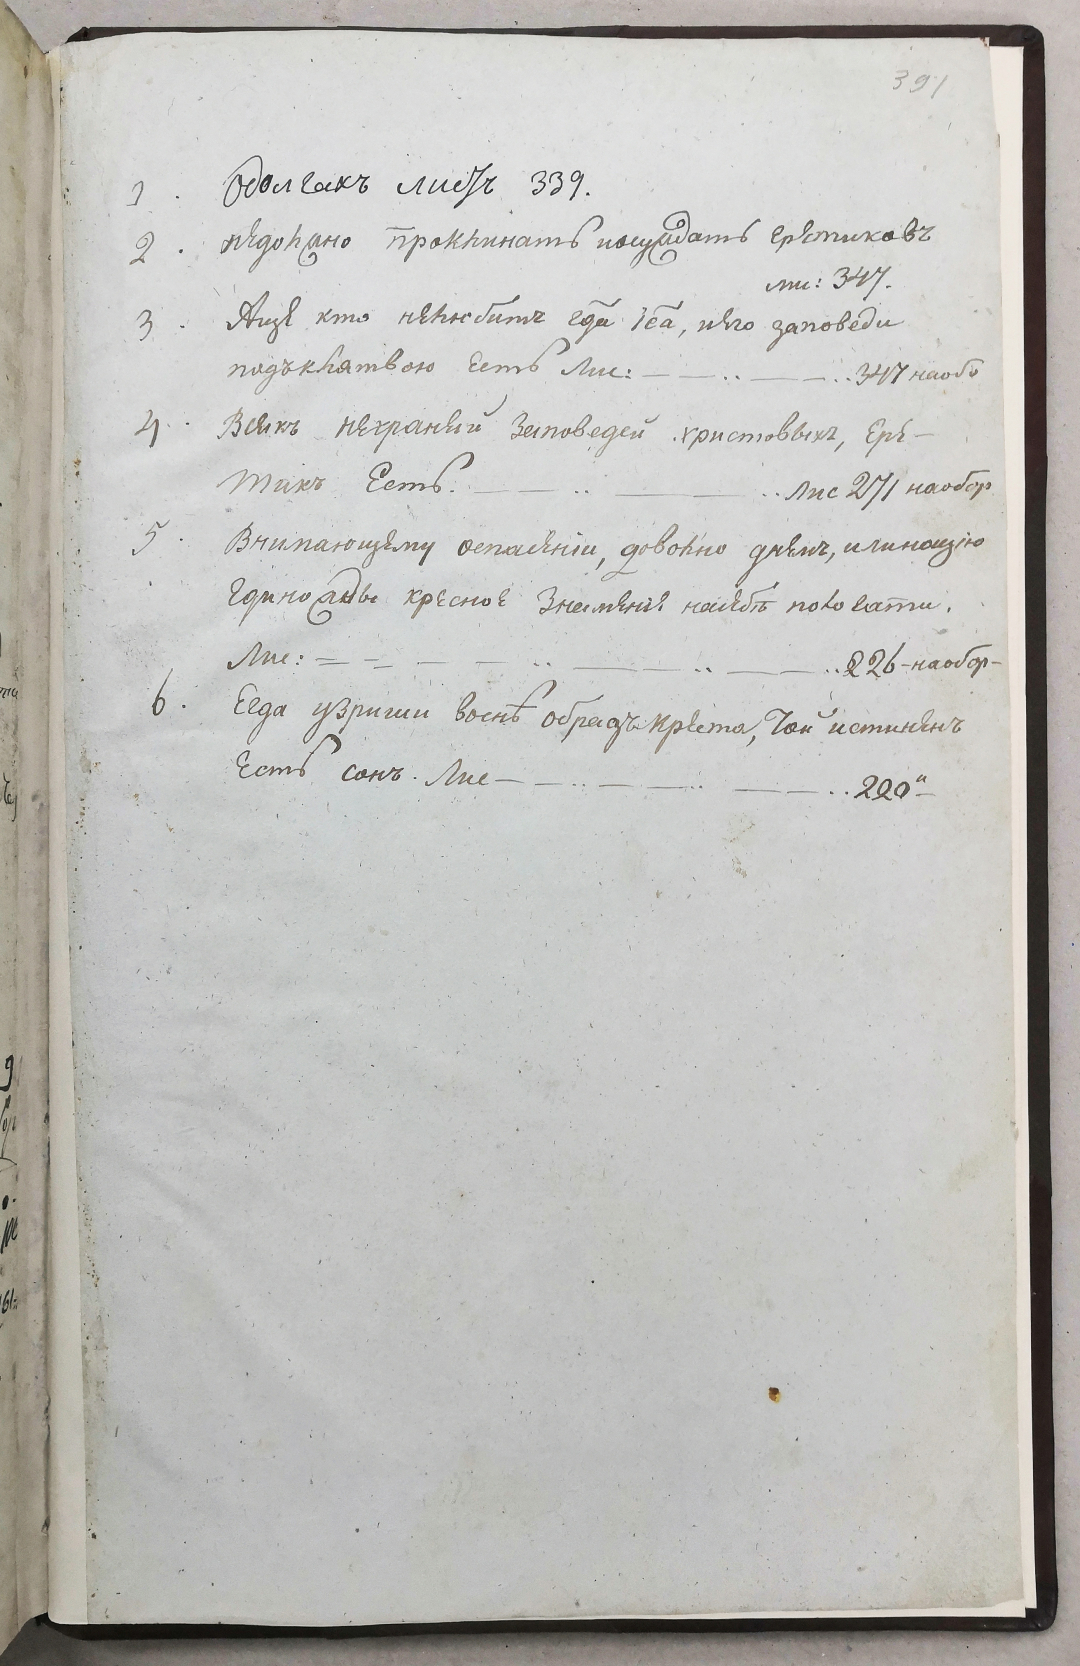 391
1. О долгахъ листъ 339.
2. недолжно проклинать и осуждать еретиковъ
лис: 347.
3. Аще кто нелюбитъ гда Іса, и его заповеди
подъ клятвою есть Лис: — — .. — — .. 347 наобо
4. Всякъ нехраняй Заповедей христовыхъ, Ере-
тикъ Есть. — — .. — — .. Лис 271 наобор
5. Внимающему оспасеніи, довольно днемъ, или нощію
единожды кресное Знаменіе насебѣ положати.
Лис: = = — — .. — — .. — — .. 226 - наобор -
6. Егда узриши воснѣ образъ креста, Той истиненъ
Есть сонъ. Лис — — .. — — .. — — .. 220